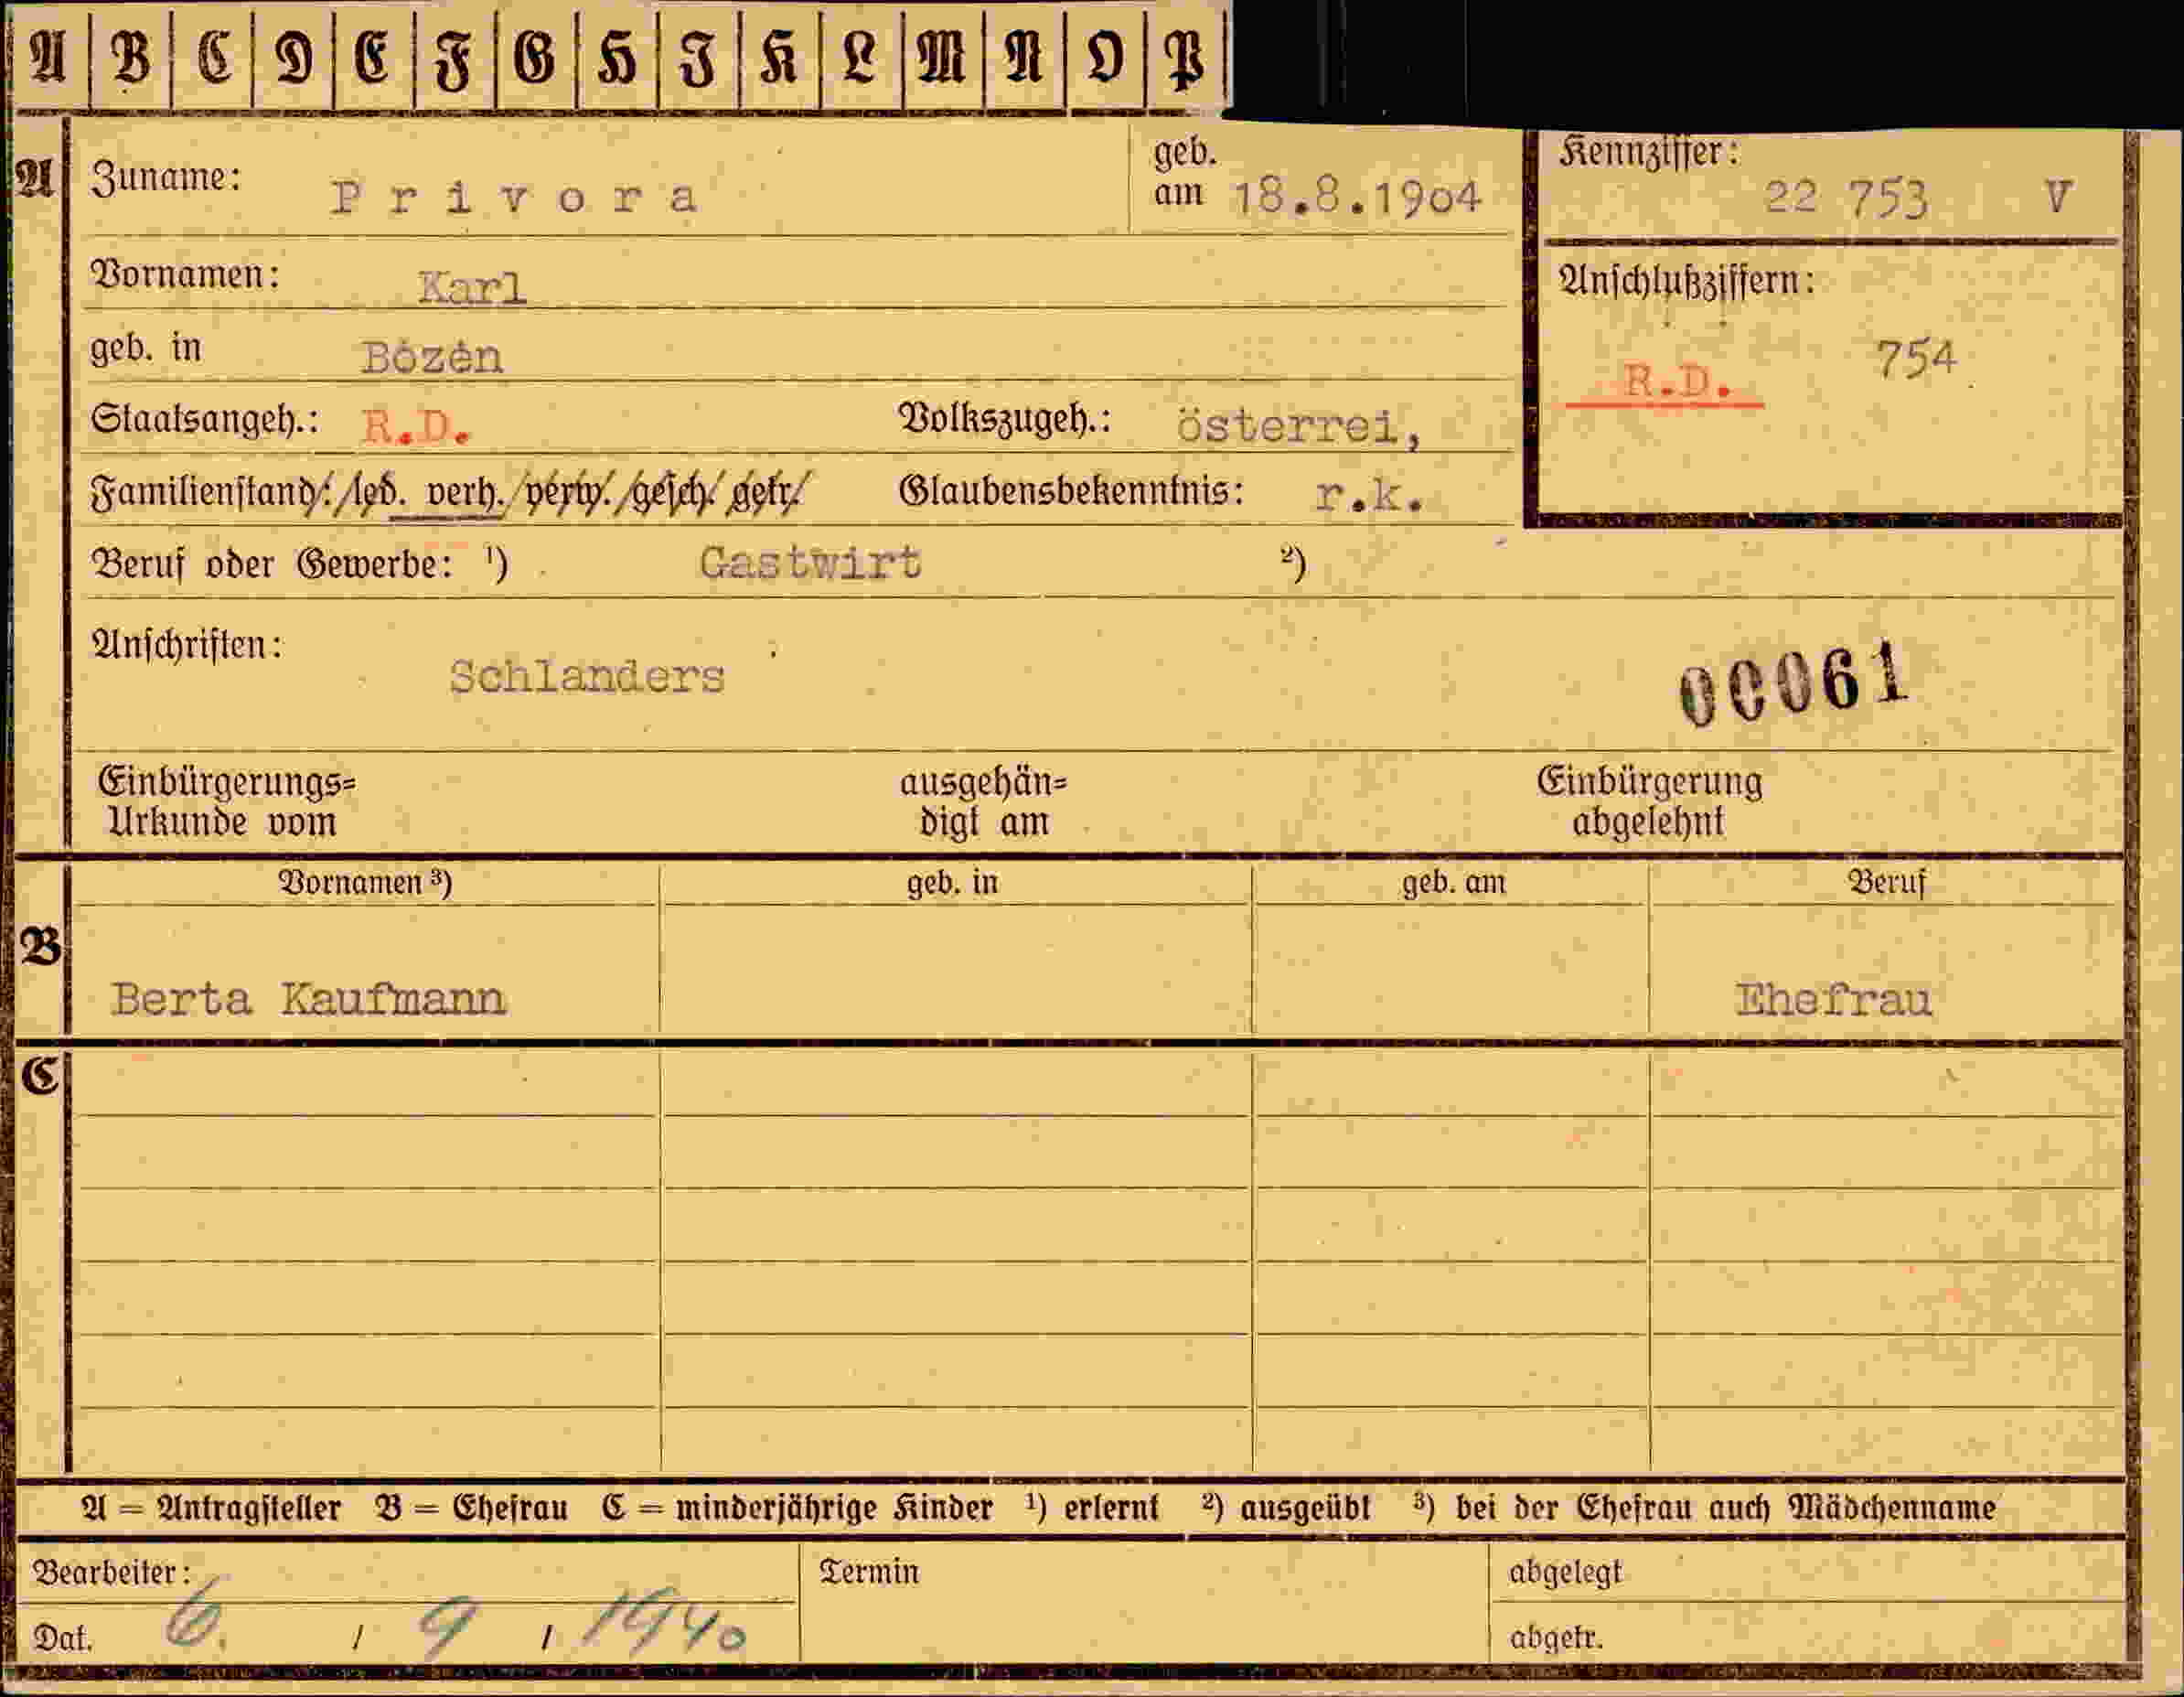 A B C D E F G H I K L M N O P
A Zuname: Privora geb. am 18.8.1904 Kennziffer: 22 753 V
Vornamen: Karl Anschlußziffern:
geb. in Bozen R.D. 754
Staatsangeh.: R.D. Volkszugeh.: österrei,
Familienstand: led. verh. verw. gesch. getr. Glaubensbekenntnis: r.k.
Beruf oder Gewerbe: ¹) Gastwirt ²)
Anschriften: Schlanders 00061
Einbürgerungs= ausgehän= Einbürgerung
Urkunde vom digt am abgelehnt
Vornamen ³) geb. in geb. am Beruf
B Berta Kaufmann Ehefrau
C
A = Antragsteller B = Ehefrau C = minderjährige Kinder ¹) erlernt ²) ausgeübt ³) bei der Ehefrau auch Mädchenname
Bearbeiter: Termin abgelegt
Dat. 6. / 9 / 1940 abgetr.